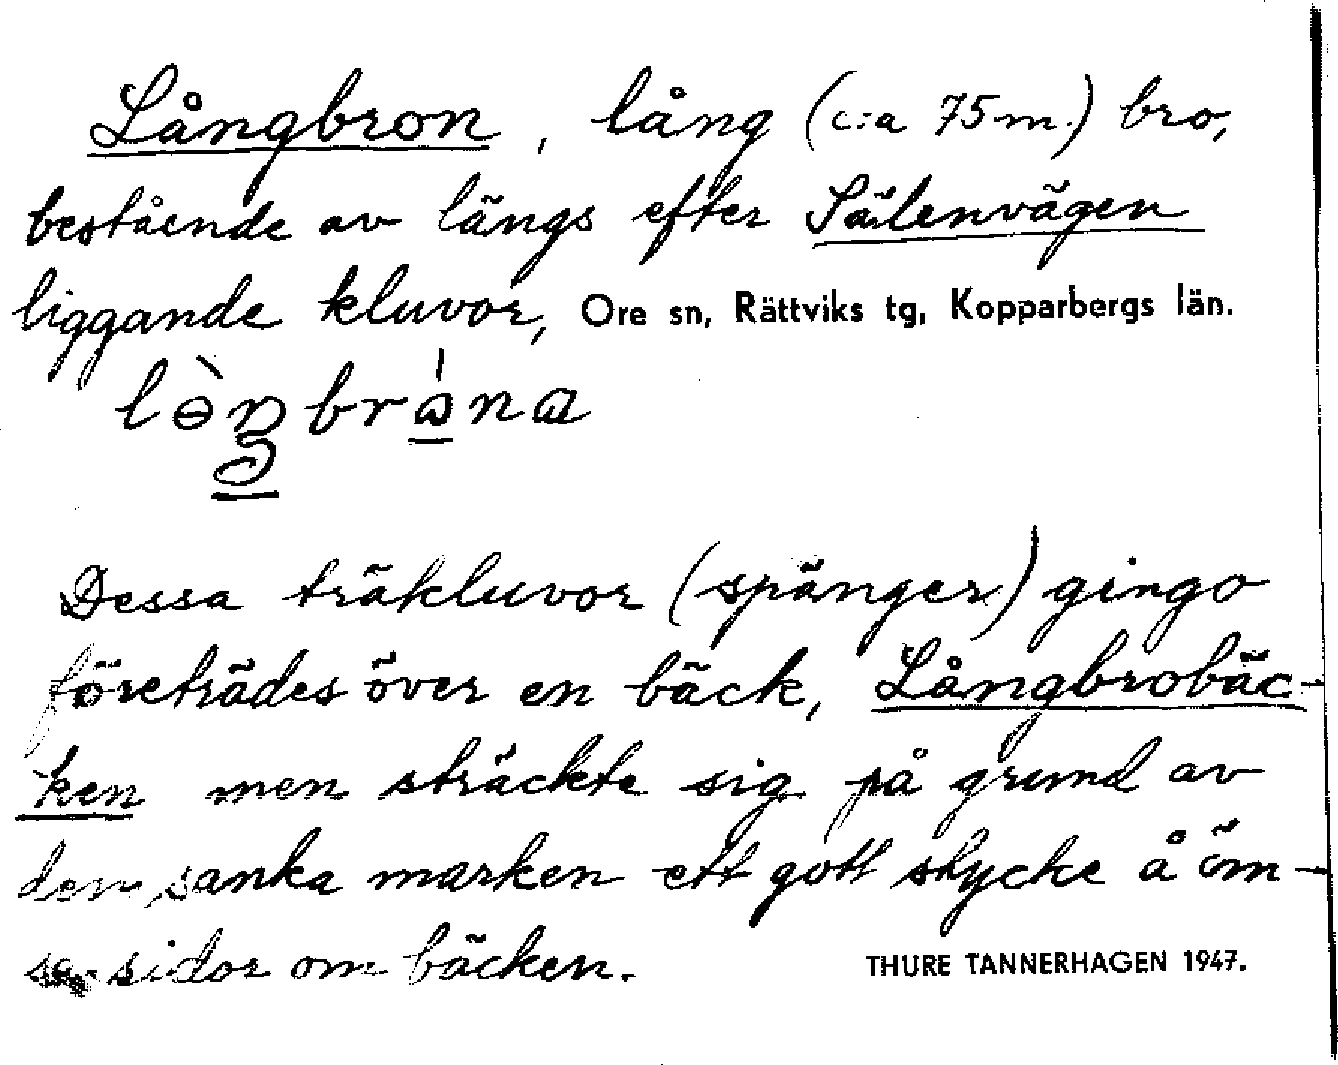 Långbron, lång (c:a 75 m.) bro,
bestående av längs efter Sälenvägen
liggande kluvor, Ore sn, Rättviks tg, Kopparbergs län.
Dessa träkluvor (spänger) gingo
företrädes över en bäck, Långbrobäc-
ken men sträckte sig på grund av
den sanka marken ett gott stycke å öm-
se sidor om bäcken.
THURE TANNERHAGEN 1947.